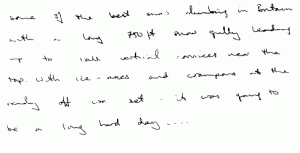 some of the best snow climbing in Britain
with a long 750 ft snow gully leading
up to vertical cornices near the
top. With ice-axes and crampons at the
ready off we set - it was going to
be a long hard day ....